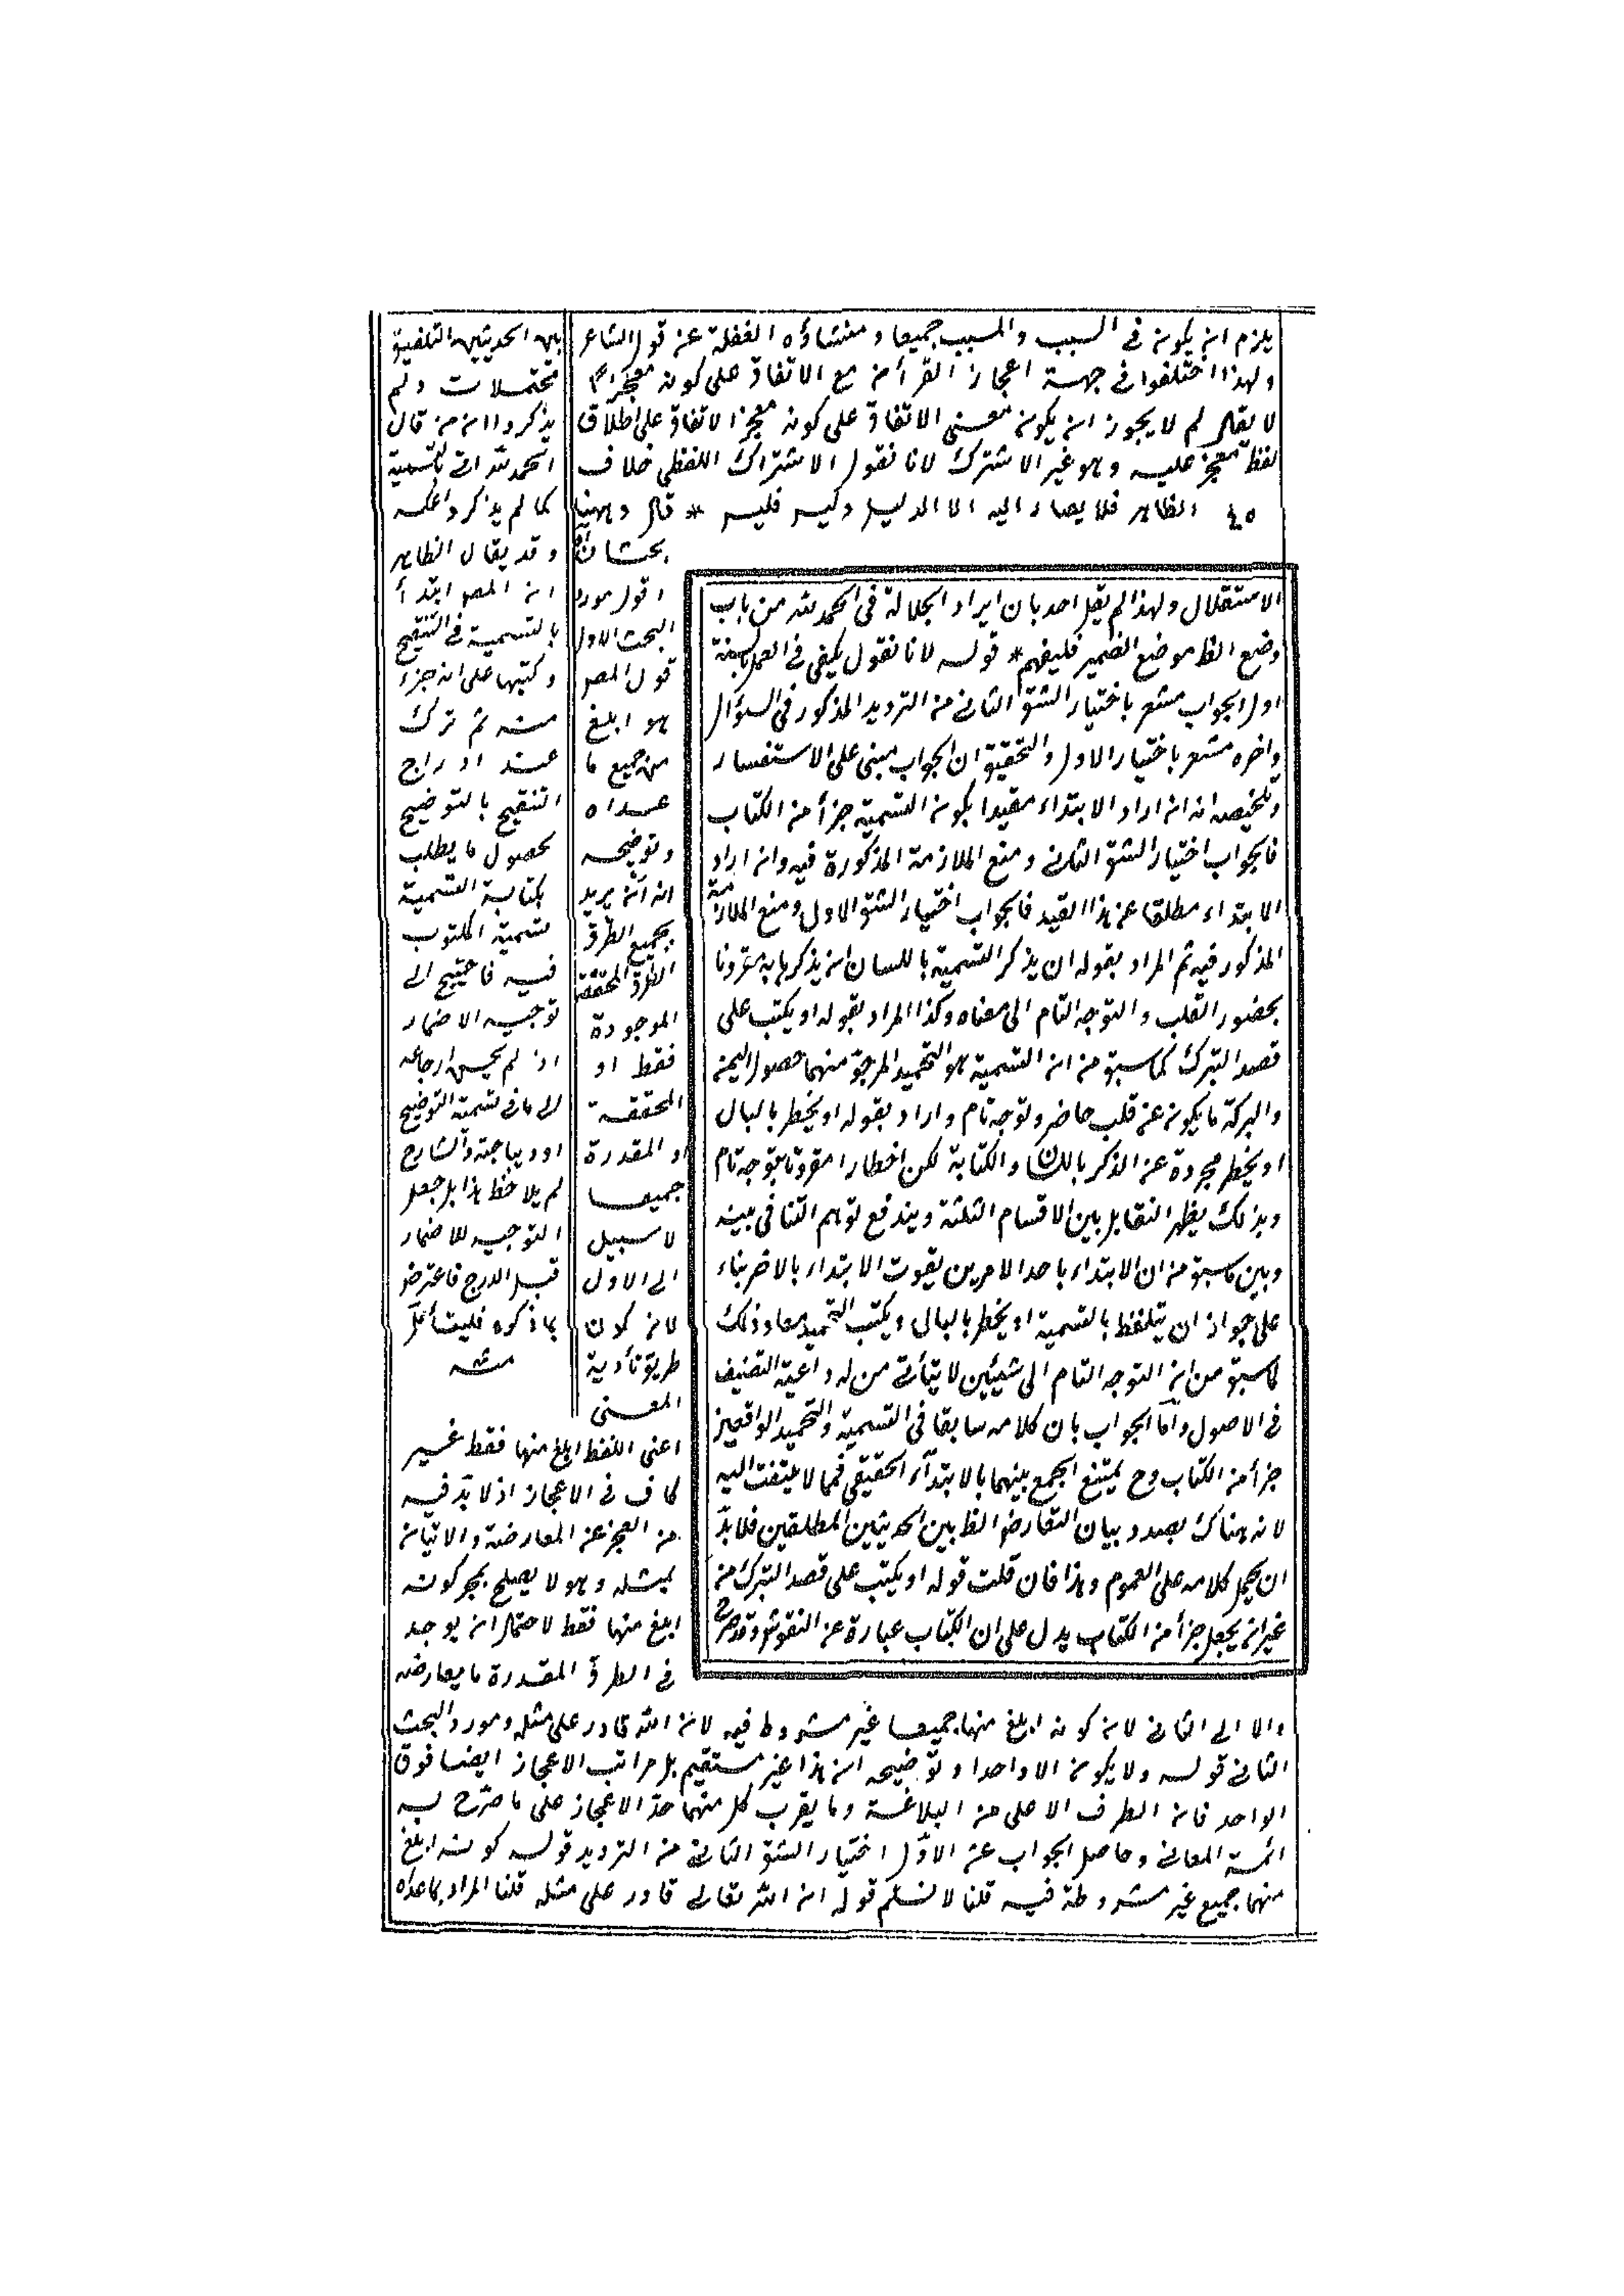 يلزم ان يكون في السبب والمسبب جميعا ومنشاؤه الغفلة عن قول الشاعر
ولهذا اختلفوا في جهة اعجاز القرأن مع الاتفاق على كونه معجزا
لا يقال لم لا يجوز ان يكون معنى الاتفاق على كونه معجزا الاتفاق على اطلاق
لفظ معجز عليه وهو غير الاشترك لانا نقول الاشتراك اللفظي خلاف
الظاهر فلا يصار اليه الا الدليل وليس فليس * قال وههنا
بحثان
اقول مورد
البحث الاول
قول المص
هو ابلغ
من جميع ما
عداه
وتوضيحه
انه ان يريد
بجميع الطرق
الطرق المحققة
الموجودة
فقط او
المحققة
او المقدرة
جميعا
لا سبيل
الى الاول
لان كون
طريق تأدية
المعنى
اعنى اللفظ ابلغ منها فقط غير
كاف في الاعجاز اذ لا بد فيه
من العجز عن المعارضة والاتيان
بمثله وهو لا يصلح بمجر كونه
ابلغ منها فقط لاحتمال ان يوجد
في الطرق المقدرة ما يعارضه
والا الى الثاني لان كونه ابلغ منها جميعا غير مشروط فيه لان الله قادر على مثله ومورد البحث
الثاني قوله ولا يكون الا واحدا وتوضيحه ان هذا غير مستقيم بل مراتب الاعجاز ايضا فوق
الواحد فان الطرف الاعلى من البلاغة وما يقرب كل منهما حد الاعجاز على ما صرح به
ائمة المعاني وحاصل الجواب عن الاول اختيار الشق الثاني من الترديد قوله كونه ابلغ
منهما جميع غير مشروطة فيه قلنا لا نسلم قوله ان الله تعالى قادر على مثله قلنا المراد بما عداه
الاستقلال ولهذا لم يقل احد بان ايراد الجلالة في الحمد لله من باب
وضع الظ موضع الضمير فليفهم * قوله لانا نقول يكفي في العمل بالسنة
اول الجواب مشعر باختيار الشق الثاني من الترديد المذكور في السؤال
واخره مشعر باختيار الاول والتحقيق ان الجواب مبنى على الاستفسار
وتلخيصه انه ان اراد الابتداء مقيدا بكون التسمية جزأ من الكتاب
فالجواب اختيار الشق الثاني ومنع الملازمة المذكورة فيه وان اراد
الابتداء مطلقا عن هذا القيد فالجواب اختيار الشق الاول ومنع الملازمة
المذكور فيه ثم المراد بقوله ان يذكر التسمية باللسان ان يذكر بها به مقرونا
بحضور القلب والتوجه التام الى معناه وكذا المراد بقوله او يكتب على
قصد التبرك لما سبق من ان التسمية هو التحميد المرجو منهما حصول اليمن
والبركة ما يكون عن قلب حاضر وتوجه تام واراد بقوله او يخطر بالبال
او يخطر مجردة عن الذكر باللسان والكتابة لكن اخطارا مقرونا بتوجه تام
وبذلك يظهر التقابل بين الاقسام الثلثة ويندفع توهم التنافى بينه
وبين ما سبق من ان الابتداء باحد الامرين يفوت الابتداء بالاخر بناء
على جواز ان يتلفظ بالتسمية او يخطر بالبال ويكتب التحميد معا وذلك
لما سبق من ان التوجه التام الى شيئين لا يتأتى من له داعية التصنيف
في الاصول واما الجواب بان كلامه سابقا في التسمية والتحميد الواقعين
جزأ من الكتاب وح يمتنع الجمع بينهما بالابتداء الحقيقي فمما لا يلتفت اليه
لانه هناك بصدد بيان التعارض الظ بين الحديثين المطلقين فلا بد
ان يحمل كلامه على العموم وهذا فان قلت قوله او يكتب على قصد التبرك من
غير ان يجعل جزأ من الكتاب يدل على ان الكتاب عبارة عن النقوش وقد صرح
بين الحديثين التلفيق
محتملات ولم
يذكروا ان من قال
الحمد لله اتى بالتسمية
كما لم يذكر واعكسه
وقد يقال الظاهر
ان المص ابتدأ
بالتسمية في التنقيح
وكتبها على انه جزء
منه ثم ترك
عند ادراج
التنقيح بالتوضيح
لحصول ما يطلب
بكتابة التسمية
تسمية المكتوب
فيه فاحتيج الى
توجيه الاضمار
اذ لم يحسن ارجاعه
الى ما في تسمية التوضيح
او ديباجته والشارح
لم يلاحظ هذا بل جعل
التوجيه للاضمار
قبل الدرج فاعترض
بما ذكره فليتأمل
منه